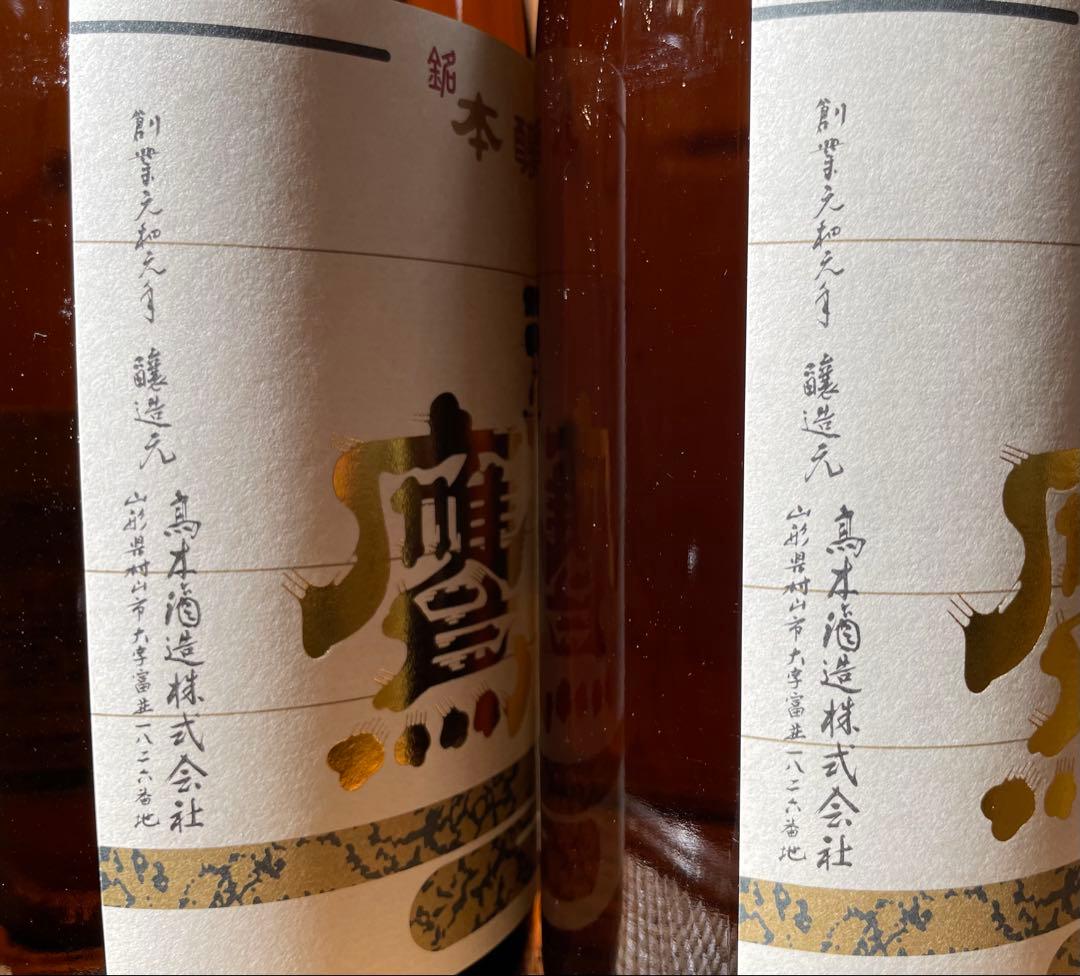 銘
本醸
鷹
創業元和元年 醸造元
高木酒造株式会社
山形県村山市大字富並一八二六番地
創業元和元年 醸造元
高木酒造株式会社
山形県村山市大字富並一八二六番地